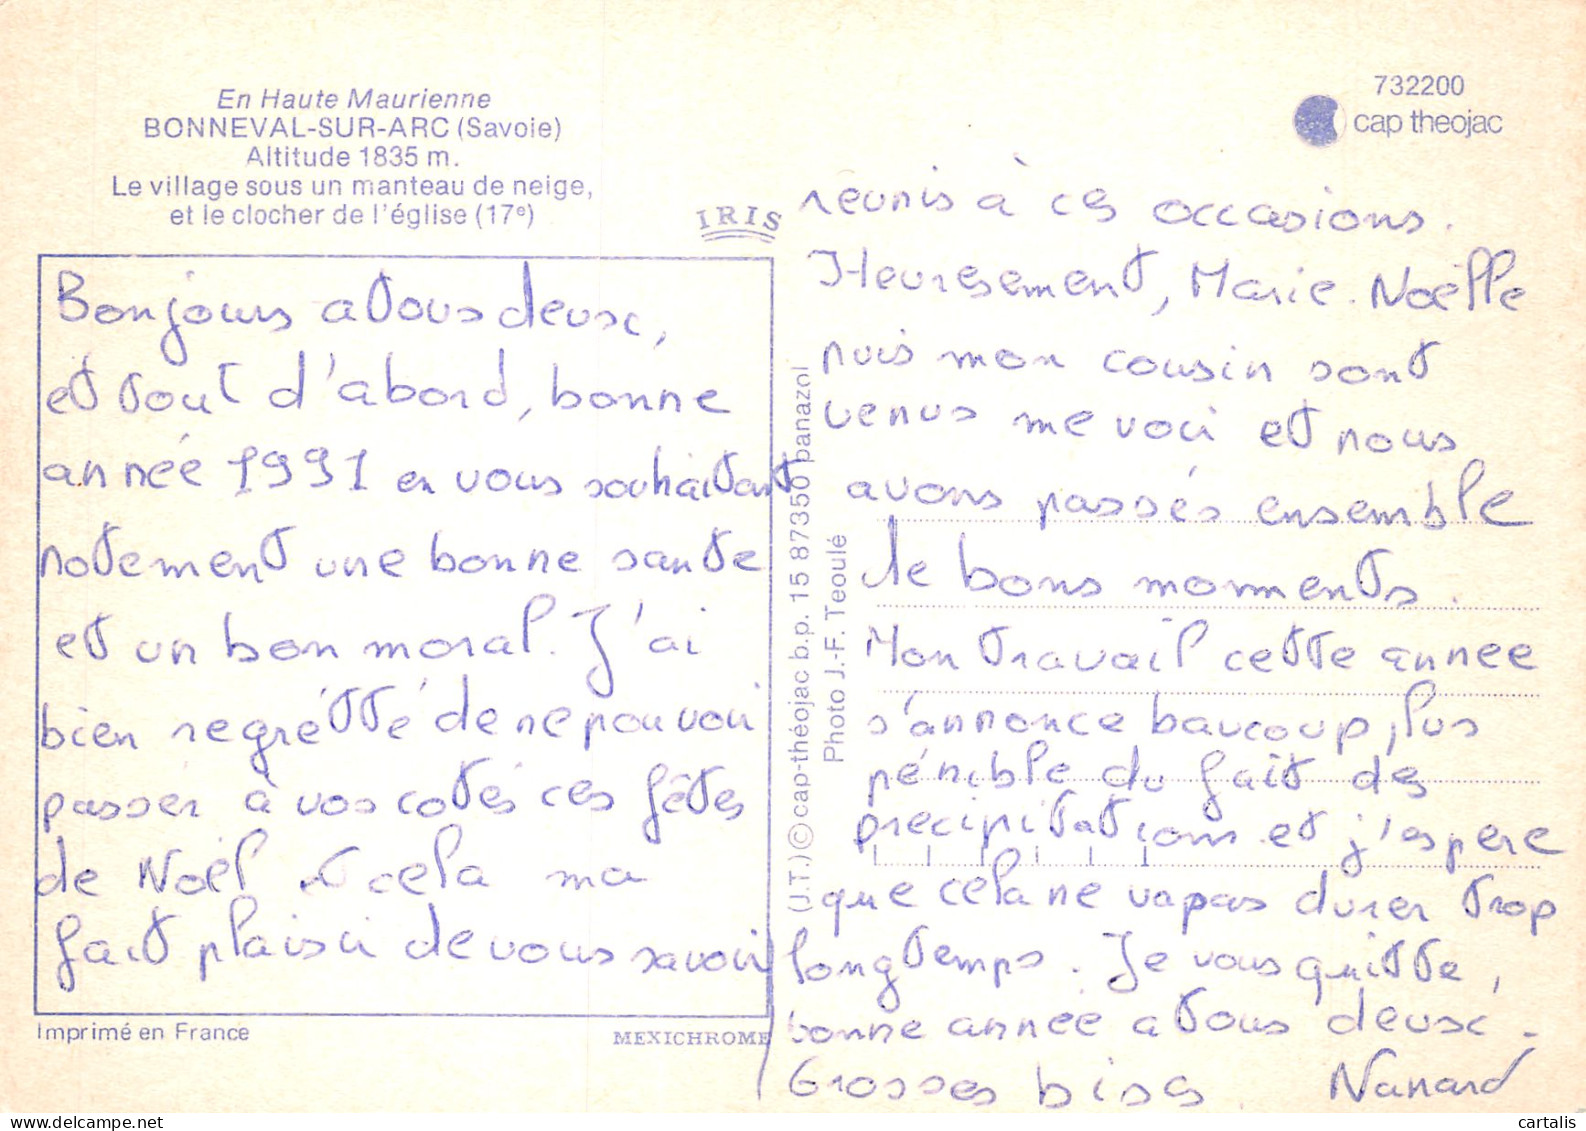 En Haute Maurienne
BONNEVAL-SUR-ARC (Savoie)
Altitude 1835 m.
Le village sous un manteau de neige,
et le clocher de l'église (17e)
IRIS
732200
cap theojac
Bonjour a tous deux,
et tout d'abord, bonne
année 1991 en vous souhaitant
notement une bonne sante
et un bon moral. J'ai
bien regrétté de ne pouvoir
passer à vos cotés ces fêtes
de Noël et cela ma
fait plaisir de vous savoir
Imprimé en France
MEXICHROME
(J.T.) © cap-théojac b.p. 15 87350 panazol
Photo J.-F. Teoulé
reunis à ces occasions.
Heuresement, Marie-Noëlle
puis mon cousin sont
venus me voir et nous
avons passés ensemble
de bons moments.
Mon travail cette annee
s'annonce baucoup plus
pénible du fait des
precipitations et j'espere
que cela ne va pas durer trop
longtemps. Je vous quitte,
bonne année a tous deux.
Grosses bises Nanard
cartalis